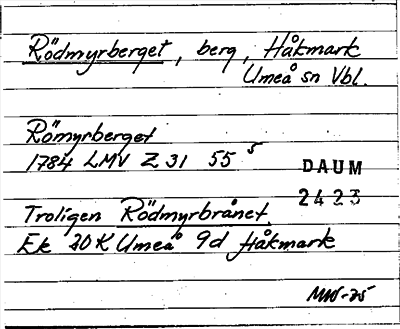 Rödmyrberget, berg, Håkmark
Umeå sn Vbl.
Römyrberget
1784 LMV Z 31 55 5
DAUM
2423
Troligen Rödmyrbrånet.
Ek 20K Umeå 9d Håkmark